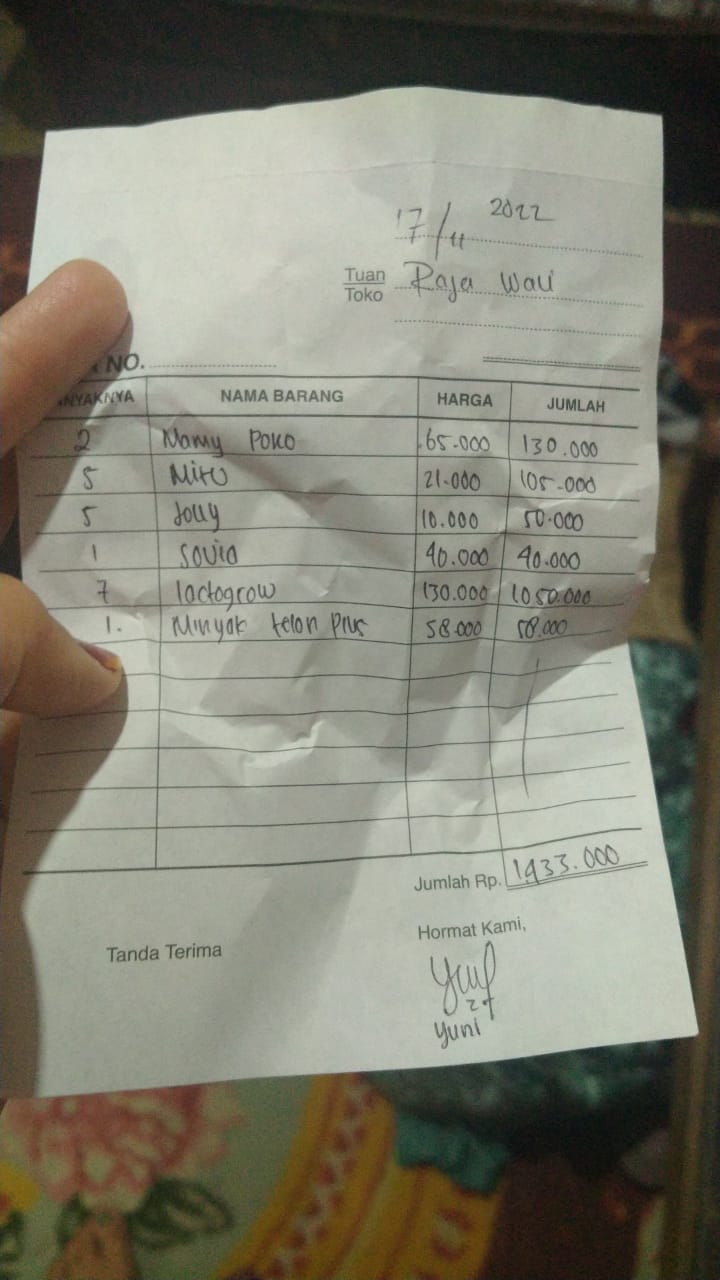 17/11 2022
Tuan
Toko Raja Wali
NO.
NYAKNYA NAMA BARANG HARGA JUMLAH
2 Mamy Poko 65.000 130.000
5 Mitu 21.000 105.000
5 Jolly 10.000 50.000
1 Sovia 40.000 40.000
7 lactogrow 130.000 1050.000
1. Minyak telon Plus 58.000 58.000
Jumlah Rp. 1.433.000
Tanda Terima
Hormat Kami,
Yuni